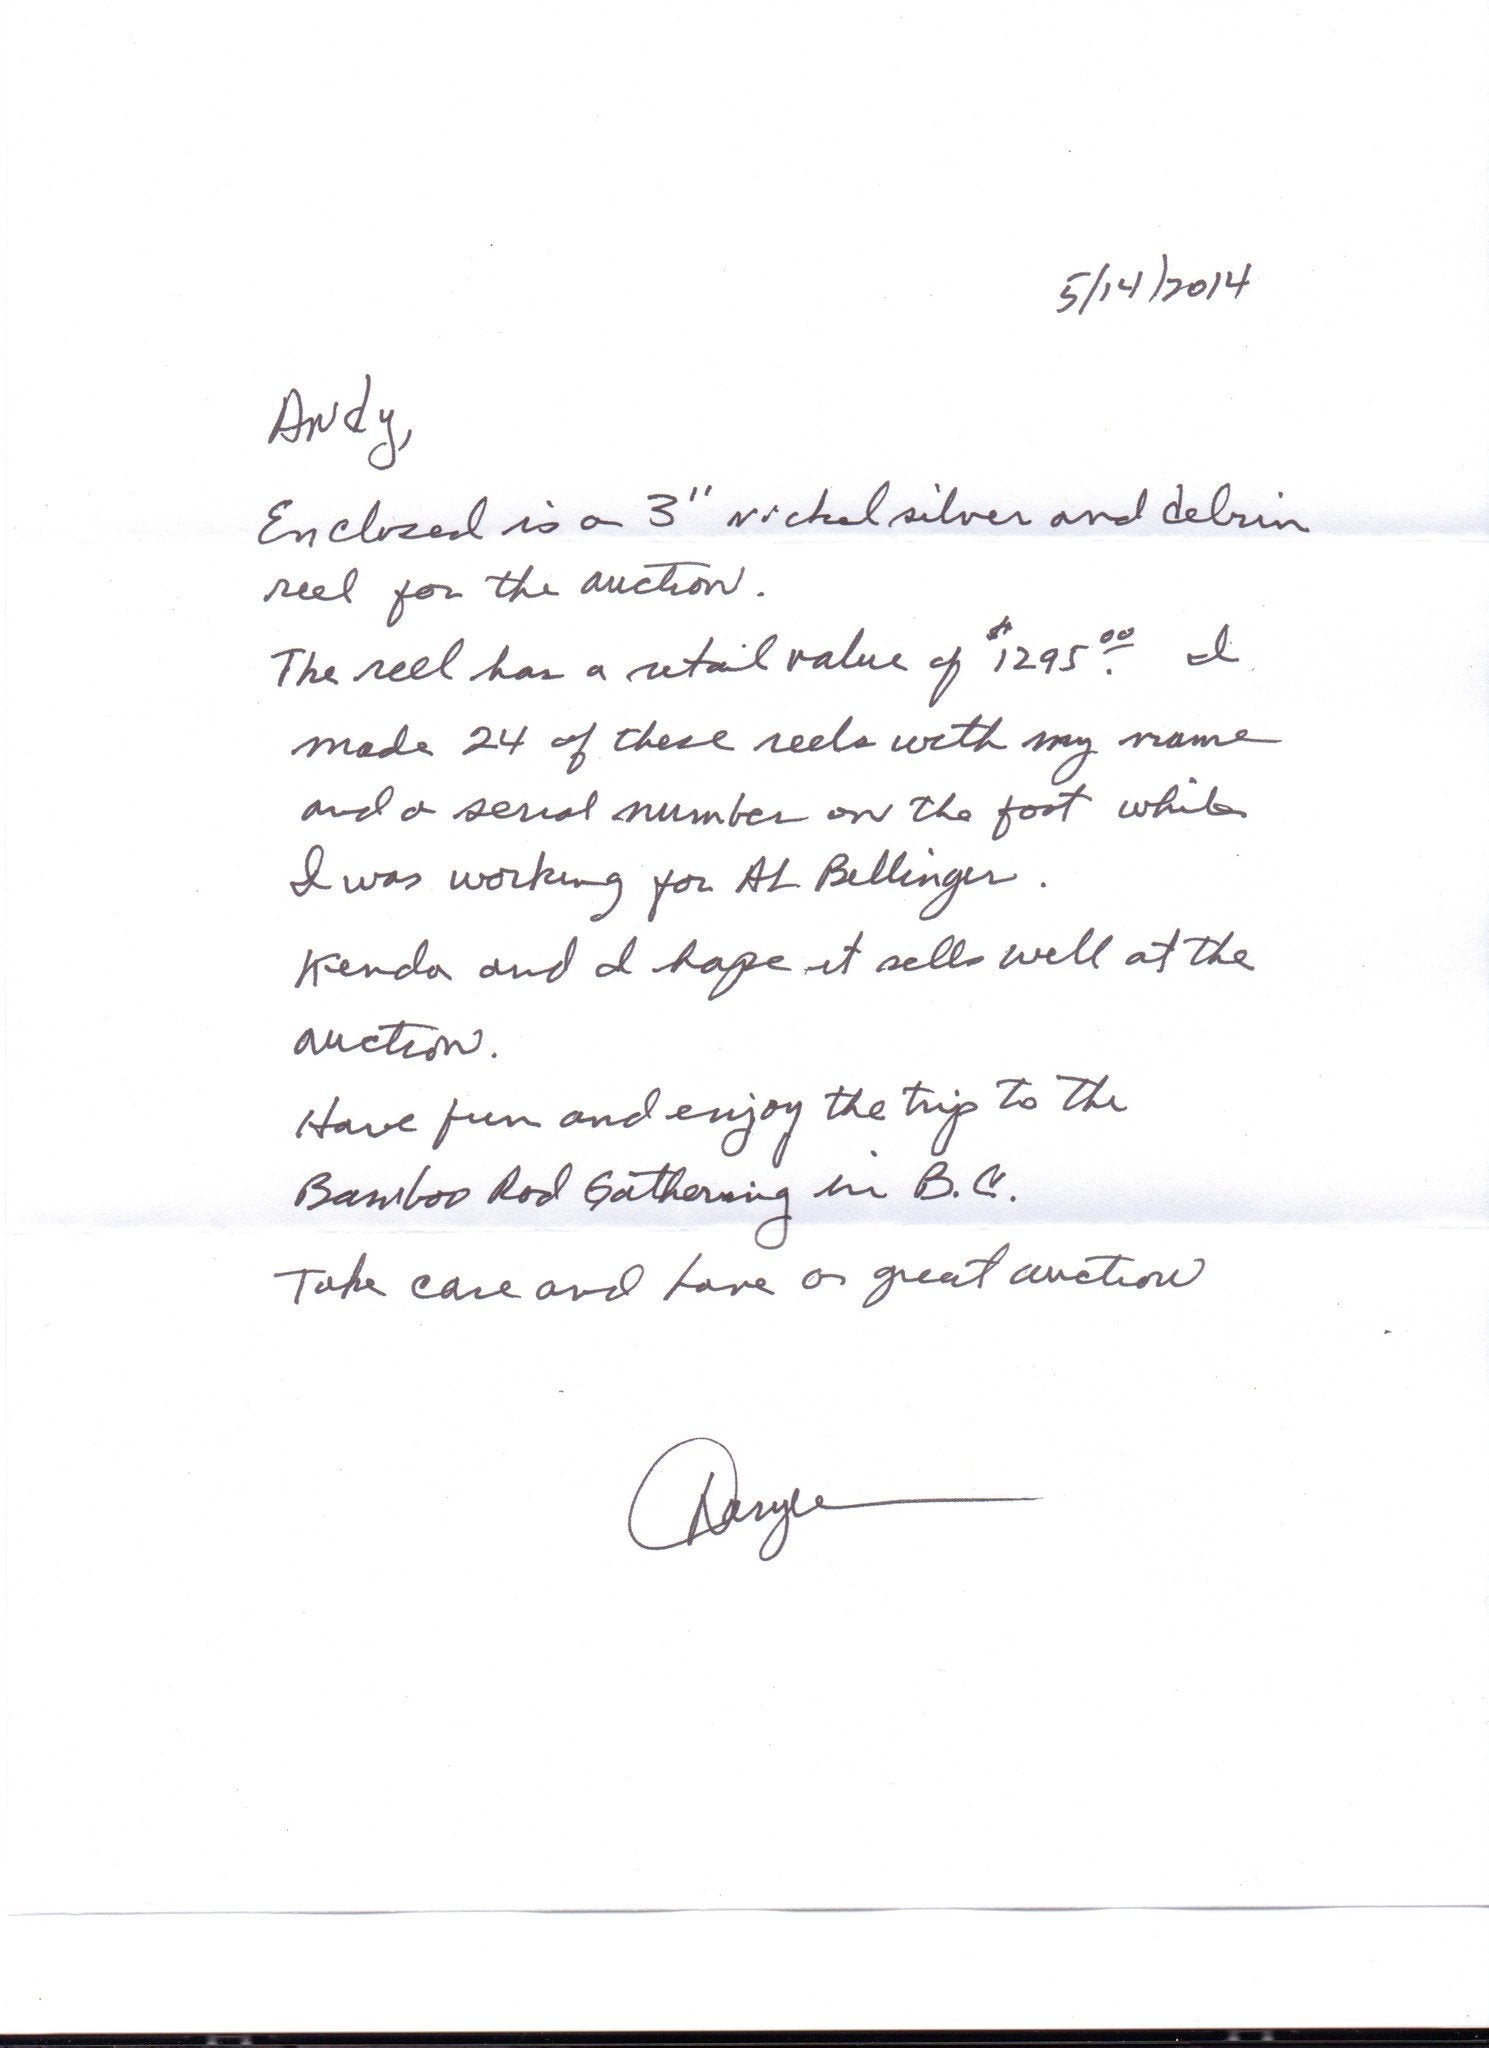 5/14/2014
Andy,
Enclosed is a 3" nickel silver and delrin
reel for the auction.
The reel has a retail value of $1295.00 I
made 24 of these reels with my name
and a serial number on the foot while
I was working for AL Bellinger.
Kenda and I hope it sells well at the
auction.
Have fun and enjoy the trip to the
Bamboo Rod Gathering in B.C.
Take care and have a great auction
Daryle